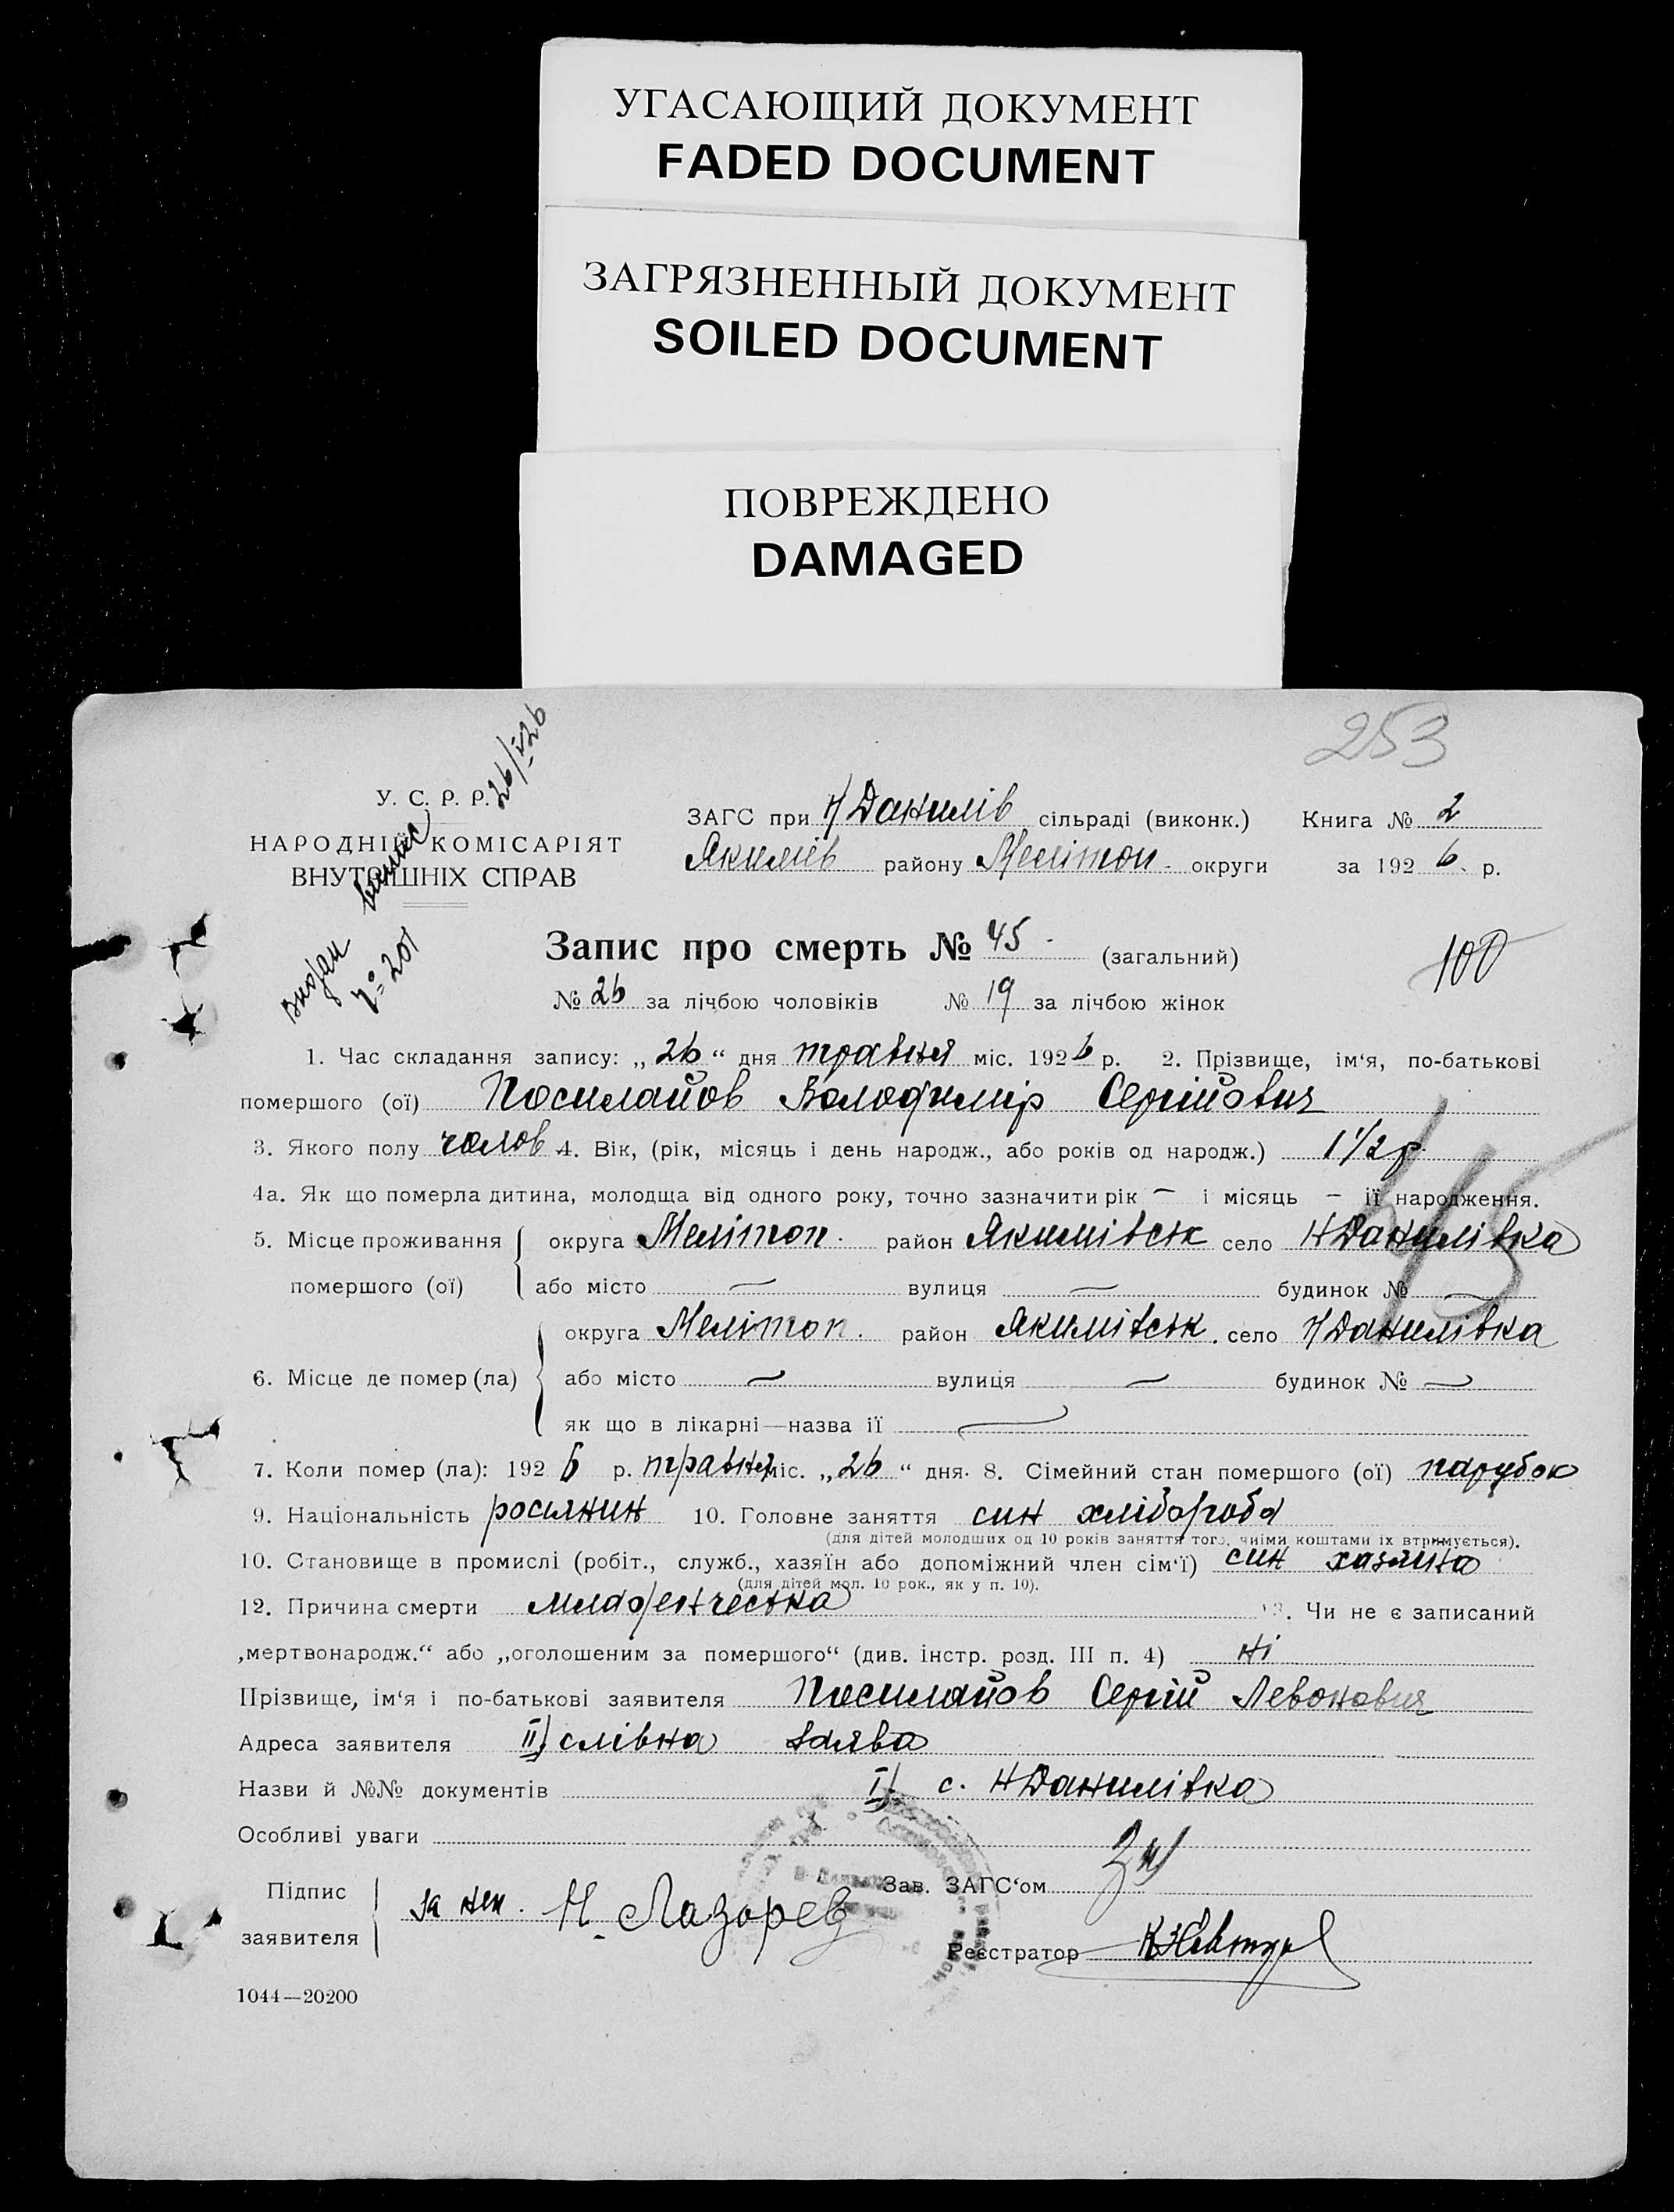 УГАСАЮЩИЙ ДОКУМЕНТ
FADED DOCUMENT
ЗАГРЯЗНЕННЫЙ ДОКУМЕНТ
SOILED DOCUMENT
ПОВРЕЖДЕНО
DAMAGED
253
У. С. Р. Р.
НАРОДНІЙ КОМІСАРІЯТ
ВНУТРІШНІХ СПРАВ
ЗАГС при Н Данилів сільраді (виконк.) Книга № 2
Якимів району Мелітоп. округи за 1926 р.
Запис про смерть № 45 (загальний)
100
№ 26 за лічбою чоловіків № 19 за лічбою жінок
1. Час складання запису: „26“ дня травня міс. 1926 р. 2. Прізвище, ім‘я, по-батькові
помершого (ої) Посилайов Володимір Сергійович
3. Якого полу чолов 4. Вік, (рік, місяць і день народж., або років од народж.) 1 1/2 р.
4а. Як що померла дитина, молодща від одного року, точно зазначити рік — і місяць — її народження.
5. Місце проживання помершого (ої) округа Мелітоп. район Якимівськ село Н Данилівка
або місто — вулиця — будинок № —
6. Місце де помер (ла) округа Мелітоп. район Якимівськ. село Н Данилівка
або місто — вулиця — будинок № —
як що в лікарні—назва її —
7. Коли помер (ла): 1926 р. травня міс. „26“ дня. 8. Сімейний стан помершого (ої) парубок
9. Національність росіянин 10. Головне заняття син хлібороба
(для дітей молодших од 10 років заняття того, чиїми коштами їх втримується).
10. Становище в промислі (робіт., служб., хазяїн або допоміжний член сім‘ї) син хазяіна
(для дітей мол. 10 рок., як у п. 10).
12. Причина смерти младенческа 13. Чи не є записаний
„мертвонародж.“ або „оголошеним за помершого“ (див. інстр. розд. III п. 4) ні
Прізвище, ім‘я і по-батькові заявителя Посилайов Сергій Левонович
Адреса заявителя II) слівна заява
Назви й №№ документів I) с. Н Данилівка
Особливі уваги
Зав. ЗАГС‘ом
Підпис заявителя за неп. Н. Лазорев
Реєстратор
1044—20200